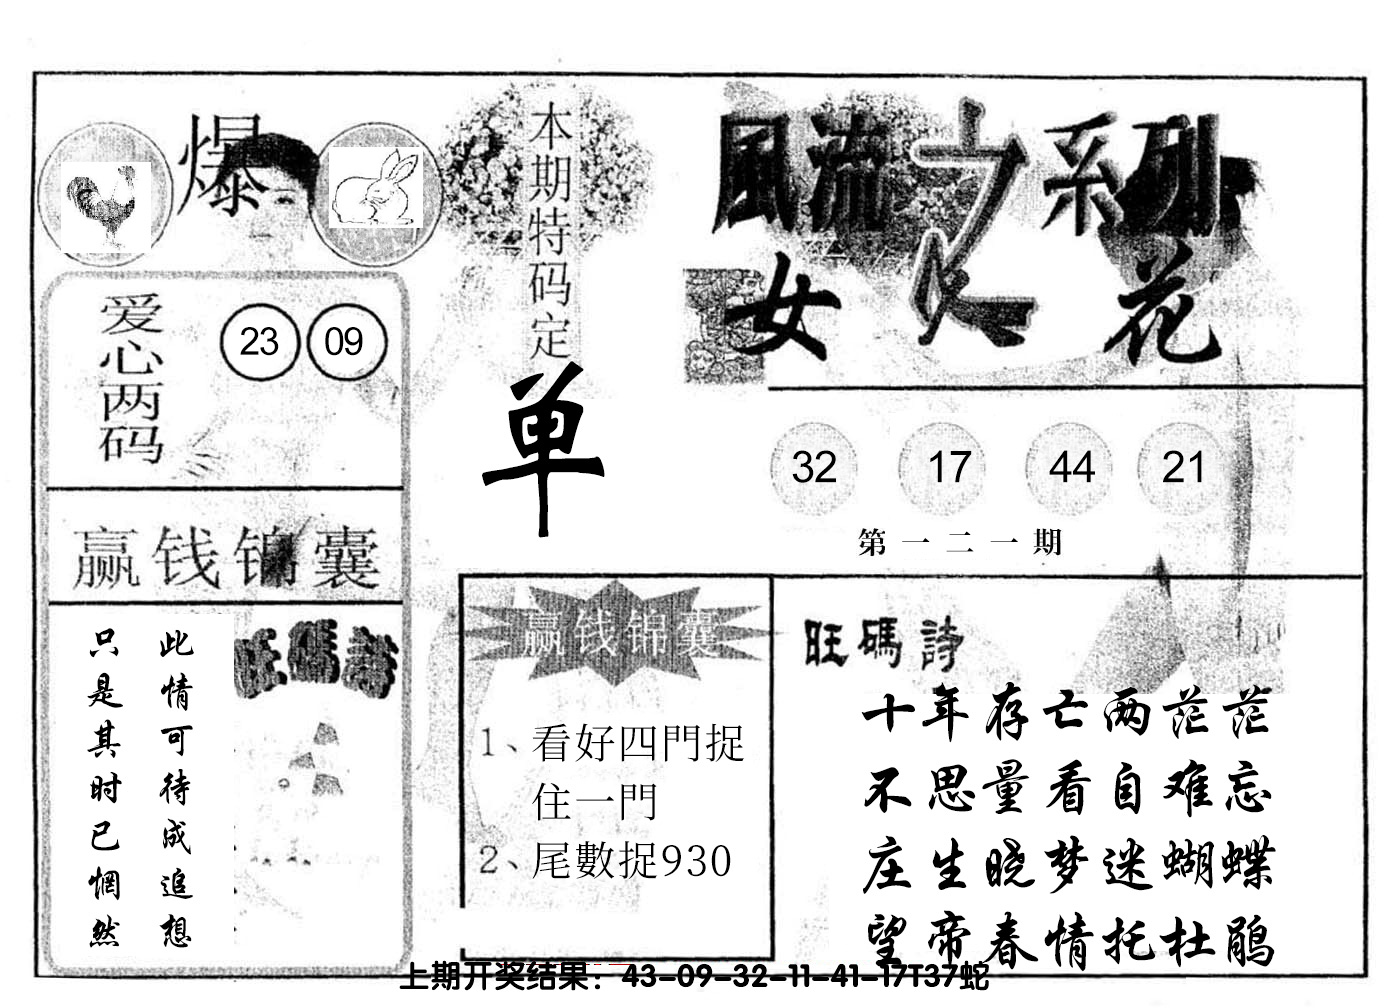 爆
本期特码定
单
風流之系列
女人花
爱心两码
23 09
32 17 44 21
第一二一期
赢钱锦囊
此情可待成追想
只是其时已惘然
旺碼詩
赢钱锦囊
1、看好四門捉
住一門
2、尾數捉930
旺碼詩
十年存亡两茫茫
不思量看自难忘
庄生晓梦迷蝴蝶
望帝春情托杜鹃
上期开奖结果：43-09-32-11-41-17T37蛇